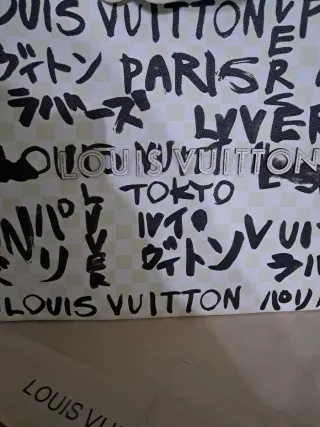 LOUIS VUITTON
LVERS
ヴィトン PARIS
ラバーズ LVVER
LOUIS VUITTON
LOUIS VUITTON
TOKYO
LVVER
パリ
ルイ・
ヴィトン VUI
ラバ
LOUIS VUITTON パリ
LOUIS VU